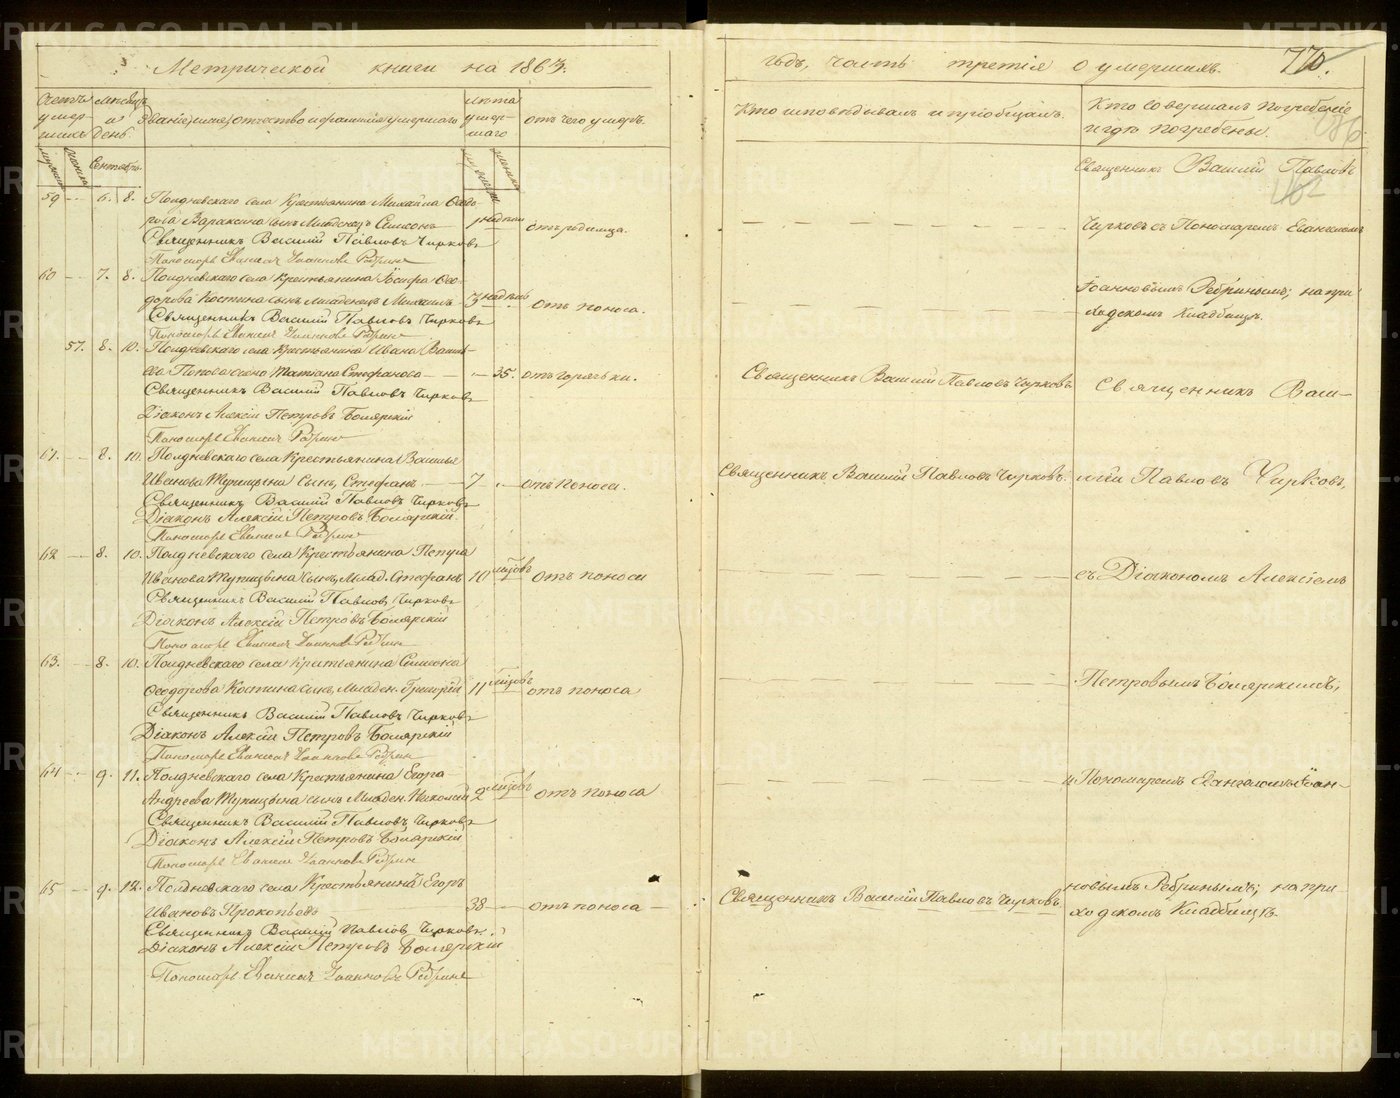 Метрической книги на 1863.
Счетъ умер-
шихъ
Мѣсяцъ и день.
Званіе, имя, отчество и фамилія умершаго
Лѣта умер-
шаго
отъ чего умеръ.
Сентябрь.
59 — 6. 8. Полдневскаго села Крестьянина Михаила Ѳеодо-
рова Вараксина сынъ Младенецъ Симеонъ 1 недѣли отъ родимца.
Священникъ Василій Павловъ Чирковъ
Пономарь Евангелъ Іоанновъ Ребринъ
60 — 7. 8. Полдневскаго села Крестьянина Іосифа Ѳео-
дорова Костина сынъ младенецъ Михаилъ 3 недѣли отъ поноса.
Священникъ Василій Павловъ Чирковъ
Пономарь Евангелъ Іоанновъ Ребринъ
57. 8. 10. Полдневскаго села Крестьянина Ивана Василь-
ева жена Татіана Стефанова — 35. отъ горячки.
Священникъ Василій Павловъ Чирковъ
Діаконъ Алексій Петровъ Боярскій
Пономарь Евангелъ Ребринъ
61. — 8. 10. Полдневскаго села Крестьянина Василья
Иванова Тупицына Сынъ, Стефанъ. — 7 отъ поноса.
Священникъ Василій Павловъ Чирковъ
Діаконъ Алексій Петровъ Боярскій.
Пономарь Евангелъ Ребринъ
62 — 8. 10. Полдневскаго села Крестьянина Петра
Иванова Тупицына сынъ, Млад. Стефанъ 10 мѣсяцовъ отъ поноса
Священникъ Василій Павловъ Чирковъ
Діаконъ Алексій Петровъ Боярскій
Пономарь Евангелъ Іоанновъ Ребринъ
63. — 8. 10. Полдневскаго села Крестьянина Симеона
Ѳеодорова Костина сынъ, Младен. Григорій 11 мѣсяцовъ отъ поноса
Священникъ Василій Павловъ Чирковъ
Діаконъ Алексій Петровъ Боярскій
Пономарь Евангелъ Іоанновъ Ребринъ
64 — 9. 11. Полдневскаго села Крестьянина Егора
Андреева Тупицына сынъ Младен. Николай 2 мѣсяцовъ отъ поноса
Священникъ Василій Павловъ Чирковъ
Діаконъ Алексій Петровъ Боярскій
Пономарь Евангелъ Іоанновъ Ребринъ
65 — 9. 12. Полдневскаго села Крестьянинъ Егоръ
Ивановъ Прокопьевъ 38 — отъ поноса —
Священникъ Василій Павловъ Чирковъ.
Діаконъ Алексій Петровъ Боярскій
Пономарь Евангелъ Іоанновъ Ребринъ
годъ, часть третія о умершихъ.
Кто исповѣдывалъ и пріобщалъ.
Кто совершалъ погребеніе
и гдѣ погребены.
Священникъ Василій Павловъ
Чирковъ съ Пономаремъ Евангеломъ
Іоанновымъ Ребринымъ; на при-
ходскомъ кладбищѣ.
Священникъ Василій Павловъ Чирковъ
Священникъ Васи-
Священникъ Василій Павловъ Чирковъ.
лій Павловъ Чирковъ,
съ Діакономъ Алексіемъ
Петровымъ Боярскимъ,
и Пономаремъ Евангеломъ Іоан-
новымъ Ребринымъ; на при-
Священникъ Василій Павловъ Чирковъ
ходскомъ Кладбищѣ.
METRIKI.GASO-URAL.RU